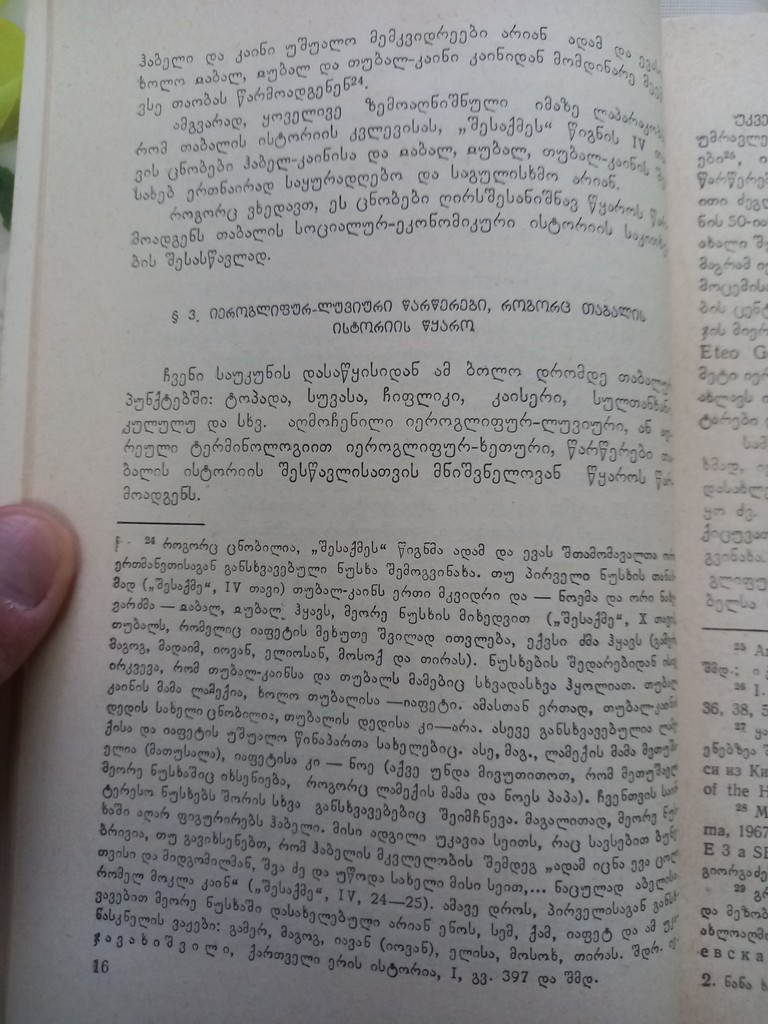 ჰაბელი და კაინი უშუალო მემკვიდრეები არიან ადამ და ევას,
ხოლო იაბალ, იუბალ და თუბალ-კაინი კაინიდან მომდინარე
ვსე თაობას წარმოადგენენ²⁴.
ამგვარად, ყოველივე ზემოაღნიშნული იმაზე
რომ თაბალის ისტორიის კვლევისას, „შესაქმეს“ წიგნის IV
ვის ცნობები ჰაბელ-კაინისა და იაბალ, იუბალ, თუბალ-კაინის
სახებ ერთნაირად საყურადღებო და საგულისხმო არიან.
როგორც ვხედავთ, ეს ცნობები ღირსშესანიშნავ წყაროს
მოადგენს თაბალის სოციალურ-ეკონომიკური ისტორიის
ბის შესასწავლად.
§ 3. იეროგლიფურ-ლუვიური წარწერები, როგორც თაბალის
ისტორიის წყარო
ჩვენი საუკუნის დასაწყისიდან ამ ბოლო დრომდე
პუნქტებში: ტოპადა, სუვასა, ჩიფლიკი, კაისერი,
კულულუ და სხვ. აღმოჩენილი იეროგლიფურ-ლუვიური, ან
რეული ტერმინოლოგიით იეროგლიფურ-ხეთური, წარწერები
ბალის ისტორიის შესწავლისათვის მნიშვნელოვან წყაროს
მოადგენს.
²⁴ როგორც ცნობილია, „შესაქმეს“ წიგნმა ადამ და ევას შთამომავალთა
ერთმანეთისაგან განსხვავებული ნუსხა შემოგვინახა. თუ პირველი ნუსხის
მად („შესაქმე“, IV თავი) თუბალ-კაინს ერთი მკვიდრი და — ნოემა და ორი
ვარძმა — იაბალ, იუბალ ჰყავს, მეორე ნუსხის მიხედვით („შესაქმე“, X
თუბალს, რომელიც იაფეტის მეხუთე შვილად ითვლება, ექვსი ძმა ჰყავს
მაგოგ, მადაიმ, იოვან, ელიოსან, მოსოქ და თირას). ნუსხების შედარებიდან
ირკვევა, რომ თუბალ-კაინსა და თუბალს მამებიც სხვადასხვა ჰყოლიათ.
კაინის მამა ლამექია, ხოლო თუბალისა —იაფეტი. ამასთან ერთად,
დედის სახელი ცნობილია, თუბალის დედისა კი—არა. ასევე განსხვავებულია
ქისა და იაფეტის უშუალო წინაპართა სახელებიც. ასე, მაგ., ლამექის მამა
ელია (მათუსალა), იაფეტისა კი — ნოე (აქვე უნდა მივუთითოთ, რომ
მეორე ნუსხაშიც იხსენიება, როგორც ლამექის მამა და ნოეს პაპა). ჩვენთვის
ტერესო ნუსხებს შორის სხვა განსხვავებებიც შეიმჩნევა. მაგალითად, მეორე
ხაში აღარ ფიგურირებს ჰაბელი. მისი ადგილი უკავია სეითს, რაც სავსებით
ბრივია, თუ გავიხსენებთ, რომ ჰაბელის მკვლელობის შემდეგ „ადამ იცნა ევა
თვისი და მიდგომილმან, შვა ძე და უწოდა სახელი მისი სეით,... ნაცულად
რომელ მოკლა კაინ“ („შესაქმე“, IV, 24—25). ამავე დროს, პირველისაგან
ვავებით მეორე ნუსხაში დასახელებული არიან ენოს, სემ, ქამ, იაფეტ და ამ
ნასკნელის ვაჟები: გამერ, მაგოგ, იავან (იოვან), ელისა, მოსოხ, თირას. შდრ.
ჯავახიშვილი, ქართველი ერის ისტორია, I, გვ. 397 და შმდ.
16
ნის
ახალი
მაგრამ
ბის
Eteo
მეტი
ახლავს
ტარები
ყო ძვ.
²⁵
შმდ.;
²⁶ I.
36, 38,
²⁷
си из
of the
²⁸
ma, 1967
²⁹
და
2. ნანა